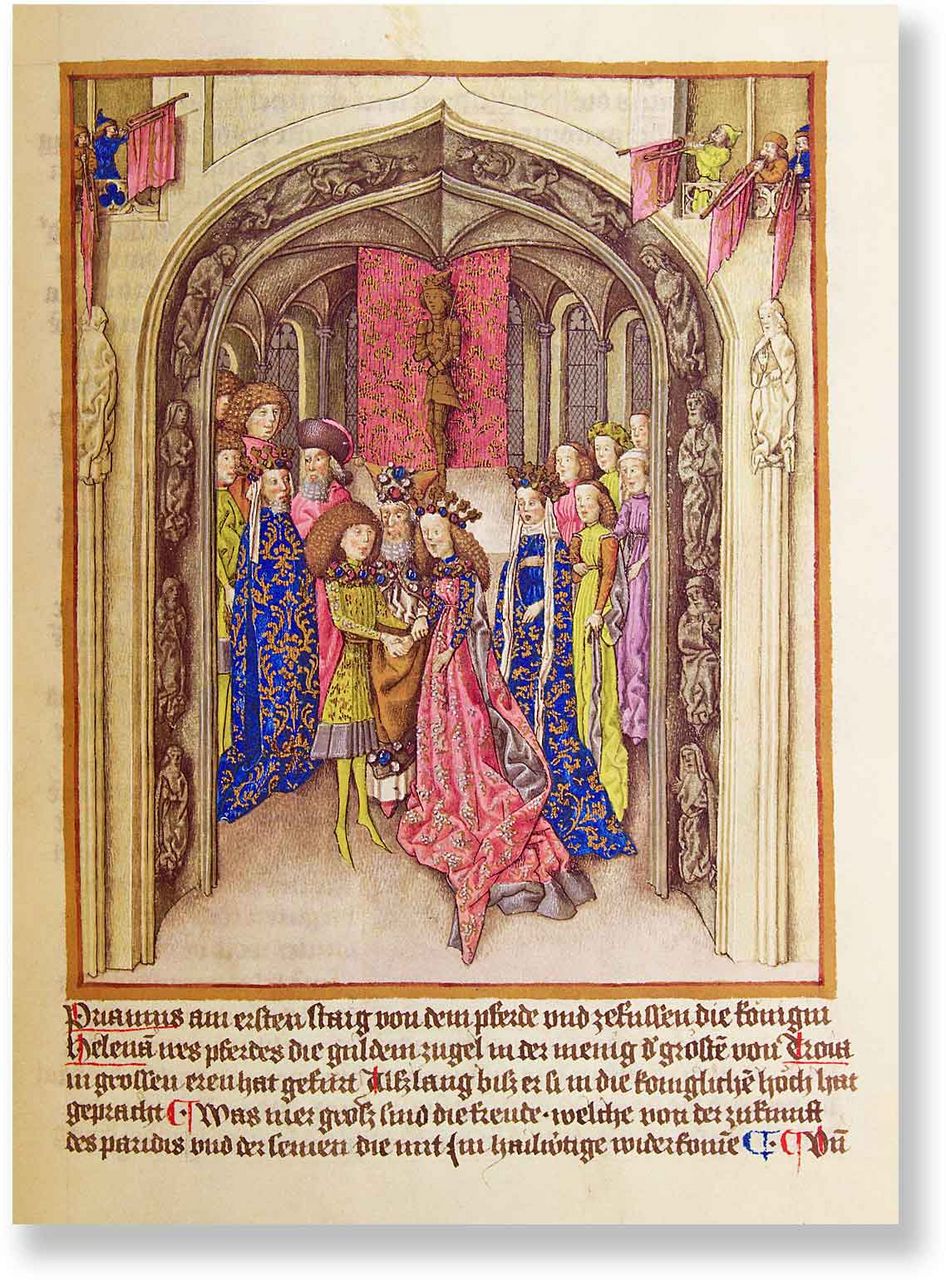 Priamus am ersten staig von dem pferde vnd zekussen die konigin
Helenā irs pferdes die guldein zugel in der menig d' grostē von Troia
in grossen eren hat gefurt Alszlang bisz er si in die koniglichē hoch hat
gepracht ¶ Was mer grosz sind die freude · welche von der zukunft
des paridis vnd der seinen die mit sin hailwtige widerkome ¶ · ¶ Vn̄